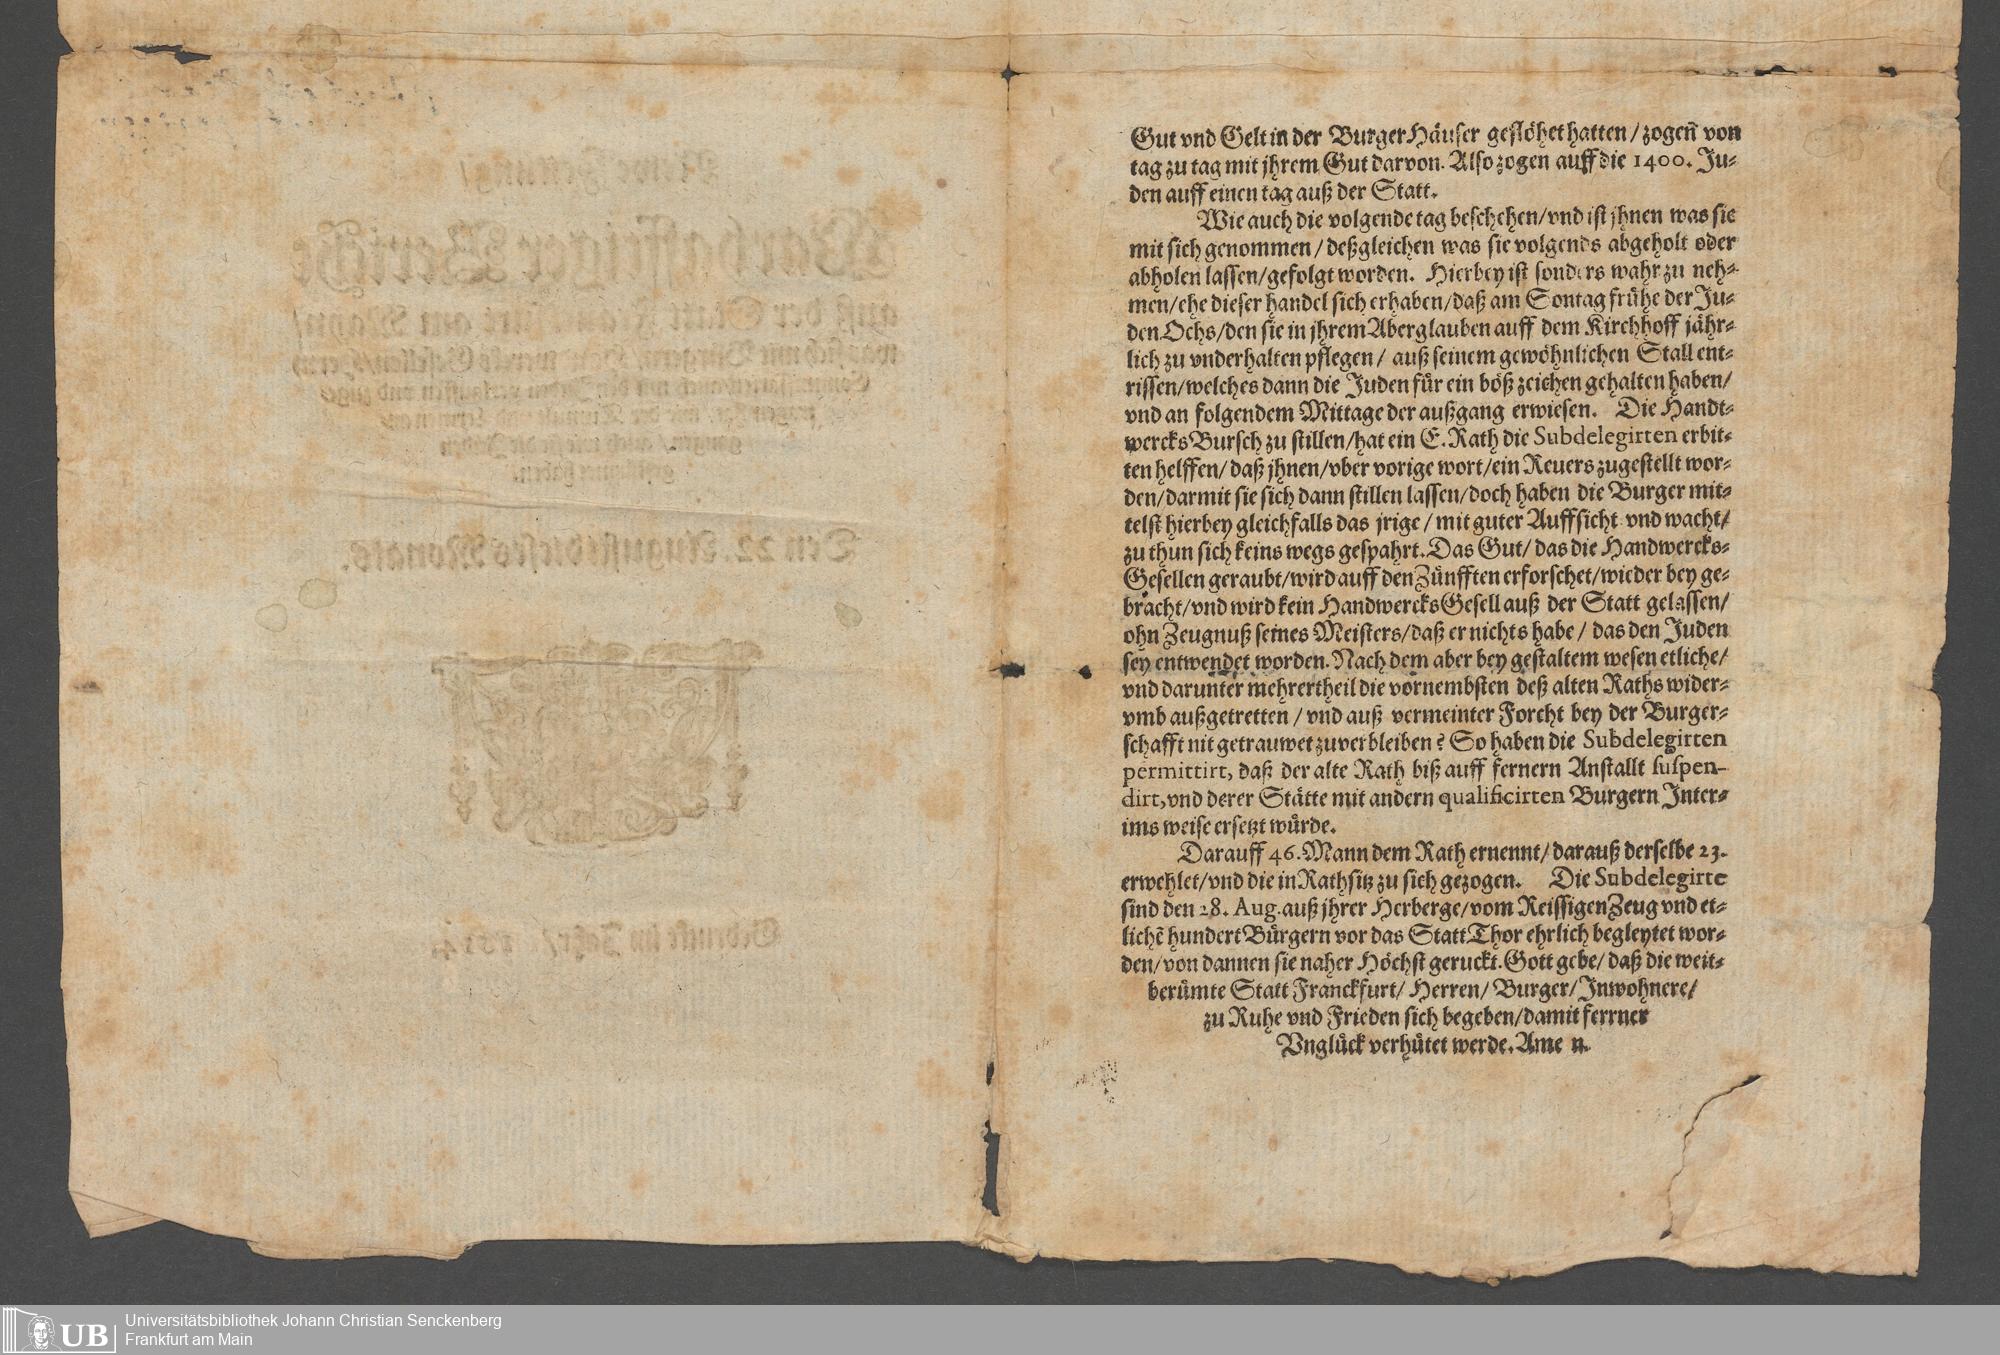 Gut vnd Gelt in der Burger Häuser geflöhet hatten / zogeñ von
tag zu tag mit jhrem Gut darvon. Also zogen auff die 1400. Ju-
den auff einen tag auß der Statt.
Wie auch die volgende tag beschehen/vnd ist jhnen was sie
mit sich genommen / deßgleichen was sie volgends abgeholt oder
abholen lassen/gefolgt worden. Hierbey ist sonders wahr zu neh-
men/ehe dieser handel sich erhaben/daß am Sontag frühe der Ju-
den Ochs/den sie in jhrem Aberglauben auff dem Kirchhoff jähr-
lich zu vnderhalten pflegen / auß seinem gewöhnlichen Stall ent-
rissen/welches dann die Juden für ein böß zeichen gehalten haben/
vnd an folgendem Mittage der außgang erwiesen. Die Handt-
wercks Bursch zu stillen/hat ein E. Rath die Subdelegirten erbit-
ten helffen/ daß jhnen/vber vorige wort/ein Reuers zugestellt wor-
den/darmit sie sich dann stillen lassen/doch haben die Burger mit-
telst hierbey gleichfalls das jrige / mit guter Auffsicht vnd wacht/
zu thun sich keins wegs gespahrt. Das Gut/ das die Handwercks-
Gesellen geraubt/wird auff den Zünfften erforschet/wieder bey ge-
bracht/vnd wird kein Handwercks Gesell auß der Statt gelassen/
ohn Zeugnuß seines Meisters/daß er nichts habe / das den Juden
sey entwendet worden. Nach dem aber bey gestaltem wesen etliche/
vnd darunter mehrertheil die vornembsten deß alten Raths wider-
vmb außgetretten / vnd auß vermeinter Forcht bey der Burger-
schafft nit getrauwet zuverbleiben? So haben die Subdelegirten
permittirt, daß der alte Rath biß auff fernern Anstallt suspen-
dirt, vnd derer Stätte mit andern qualificirten Burgern Inter-
ims weise ersetzt würde.
Darauff 46. Mann dem Rath ernennt/ darauß derselbe 23.
erwehlet/vnd die in Rathsitz zu sich gezogen. Die Subdelegirte
sind den 28. Aug. auß jhrer Herberge/vom Reissigen Zeug vnd et-
lichẽ hundert Bürgern vor das Statt Thor ehrlich begleytet wor-
den/von dannen sie naher Höchst geruckt. Gott gebe/ daß die weit-
berümte Statt Franckfurt/ Herren/ Burger/ Inwohnere/
zu Ruhe vnd Frieden sich begeben/damit ferrner
Vnglück verhütet werde. Ame n.
UB
Universitätsbibliothek Johann Christian Senckenberg
Frankfurt am Main